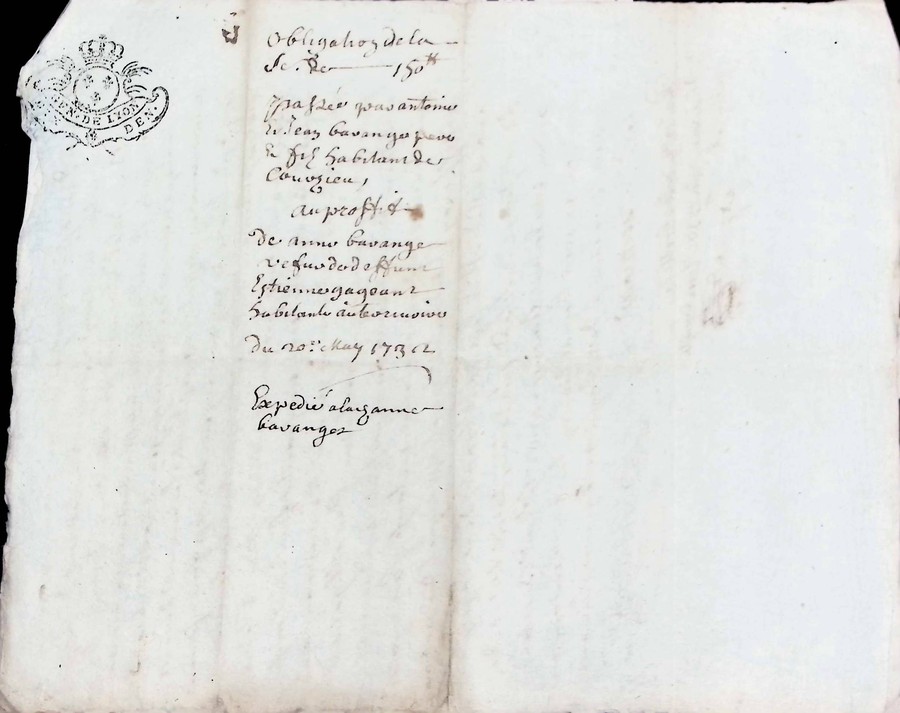 GEN. DE LYON
DEN.
Obligation de la
Se. De 150tt
passée par antoine
& Jean bavange pere
& fils habitant de
Courzieu,
au proffit
de anne bavange
vefue de deffunt
Estienne gageant
habitante a
du 20e. May 1732
Expedié a laq anne
bavange